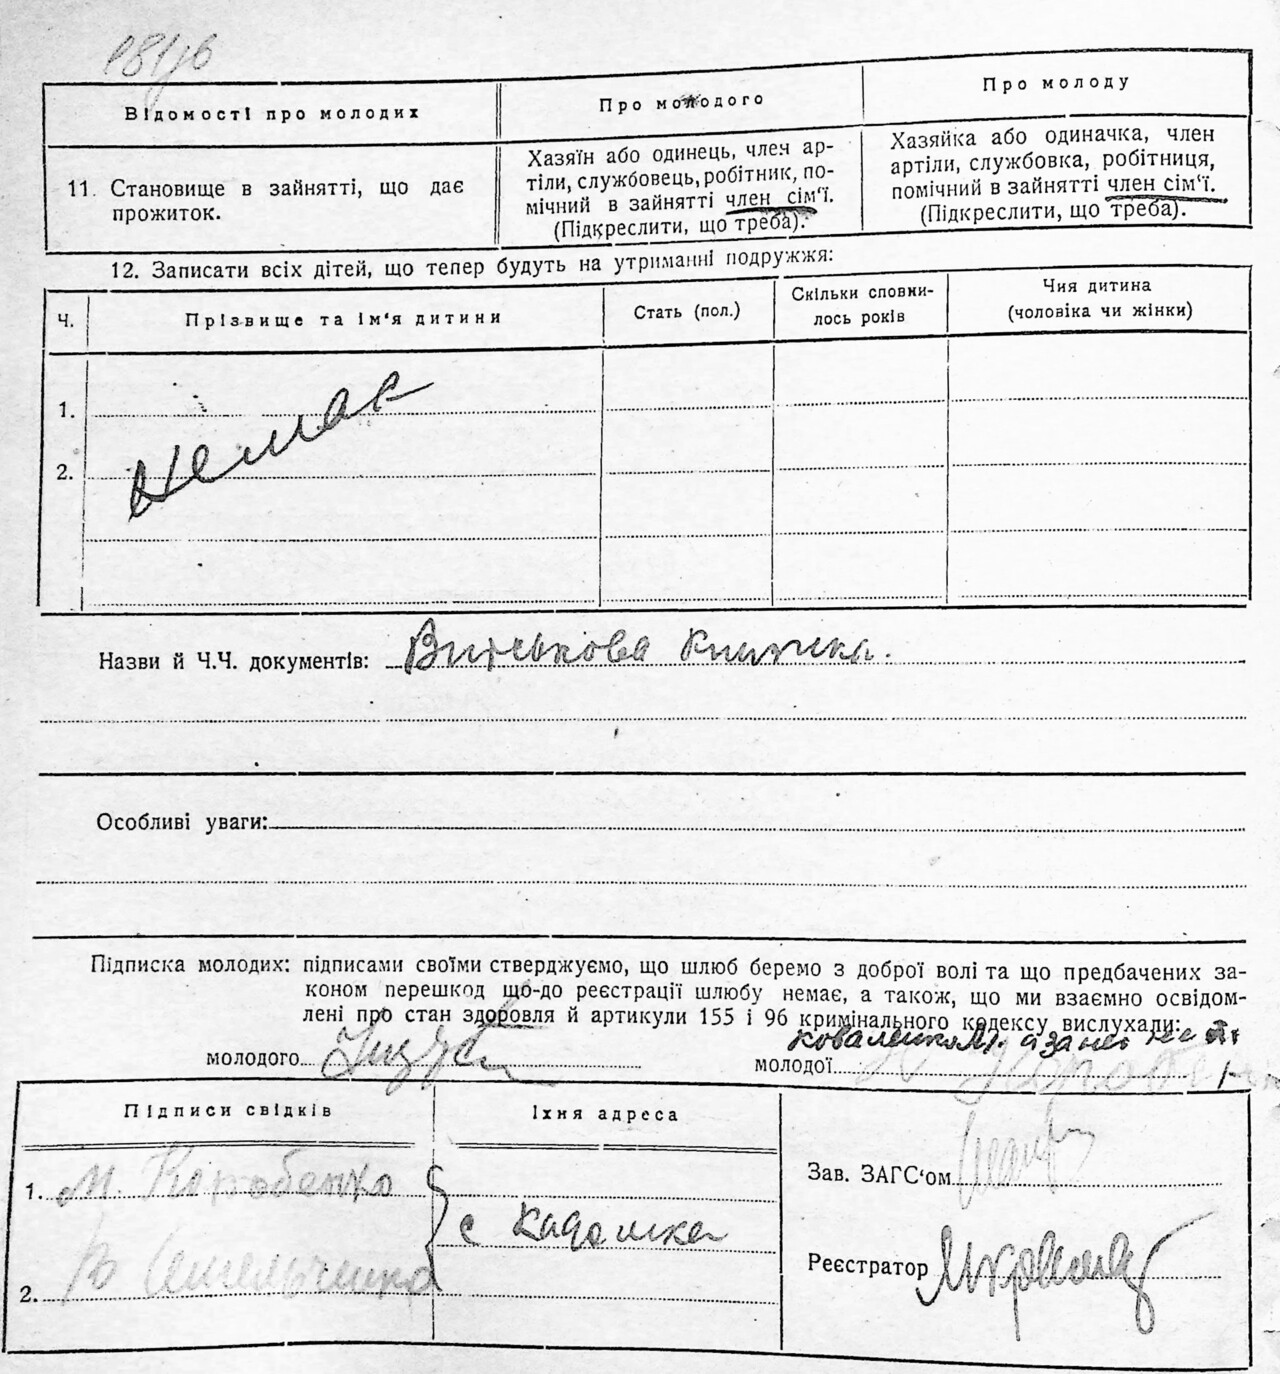 Відомості про молодих
Про молодого
Про молоду
11. Становище в зайнятті, що дає
прожиток.
Хазяїн або одинець, член ар-
тіли, службовець, робітник, по-
мічний в зайнятті член сім‘ї.
(Підкреслити, що треба).
Хазяйка або одиначка, член
артіли, службовка, робітниця,
помічний в зайнятті член сім‘ї.
(Підкреслити, що треба).
12. Записати всіх дітей, що тепер будуть на утриманні подружжя:
Ч.
Прізвище та ім‘я дитини
Стать (пол.)
Скільки сповни-
лось років
Чия дитина
(чоловіка чи жінки)
1.
2.
Немає
Назви й Ч.Ч. документів: Військова книжка.
Особливі уваги:
Підписка молодих: підписами своїми стверджуємо, що шлюб беремо з доброї волі та що предбачених за-
коном перешкод що-до реєстрації шлюбу немає, а також, що ми взаємно освідом-
лені про стан здоровля й артикули 155 і 96 кримінального кодексу вислухали:
Коваленко а за неї
молодого
молодої
Підписи свідків
Їхня адреса
1. М. Коробенко
с
2.
Зав. ЗАГС‘ом
Реєстратор